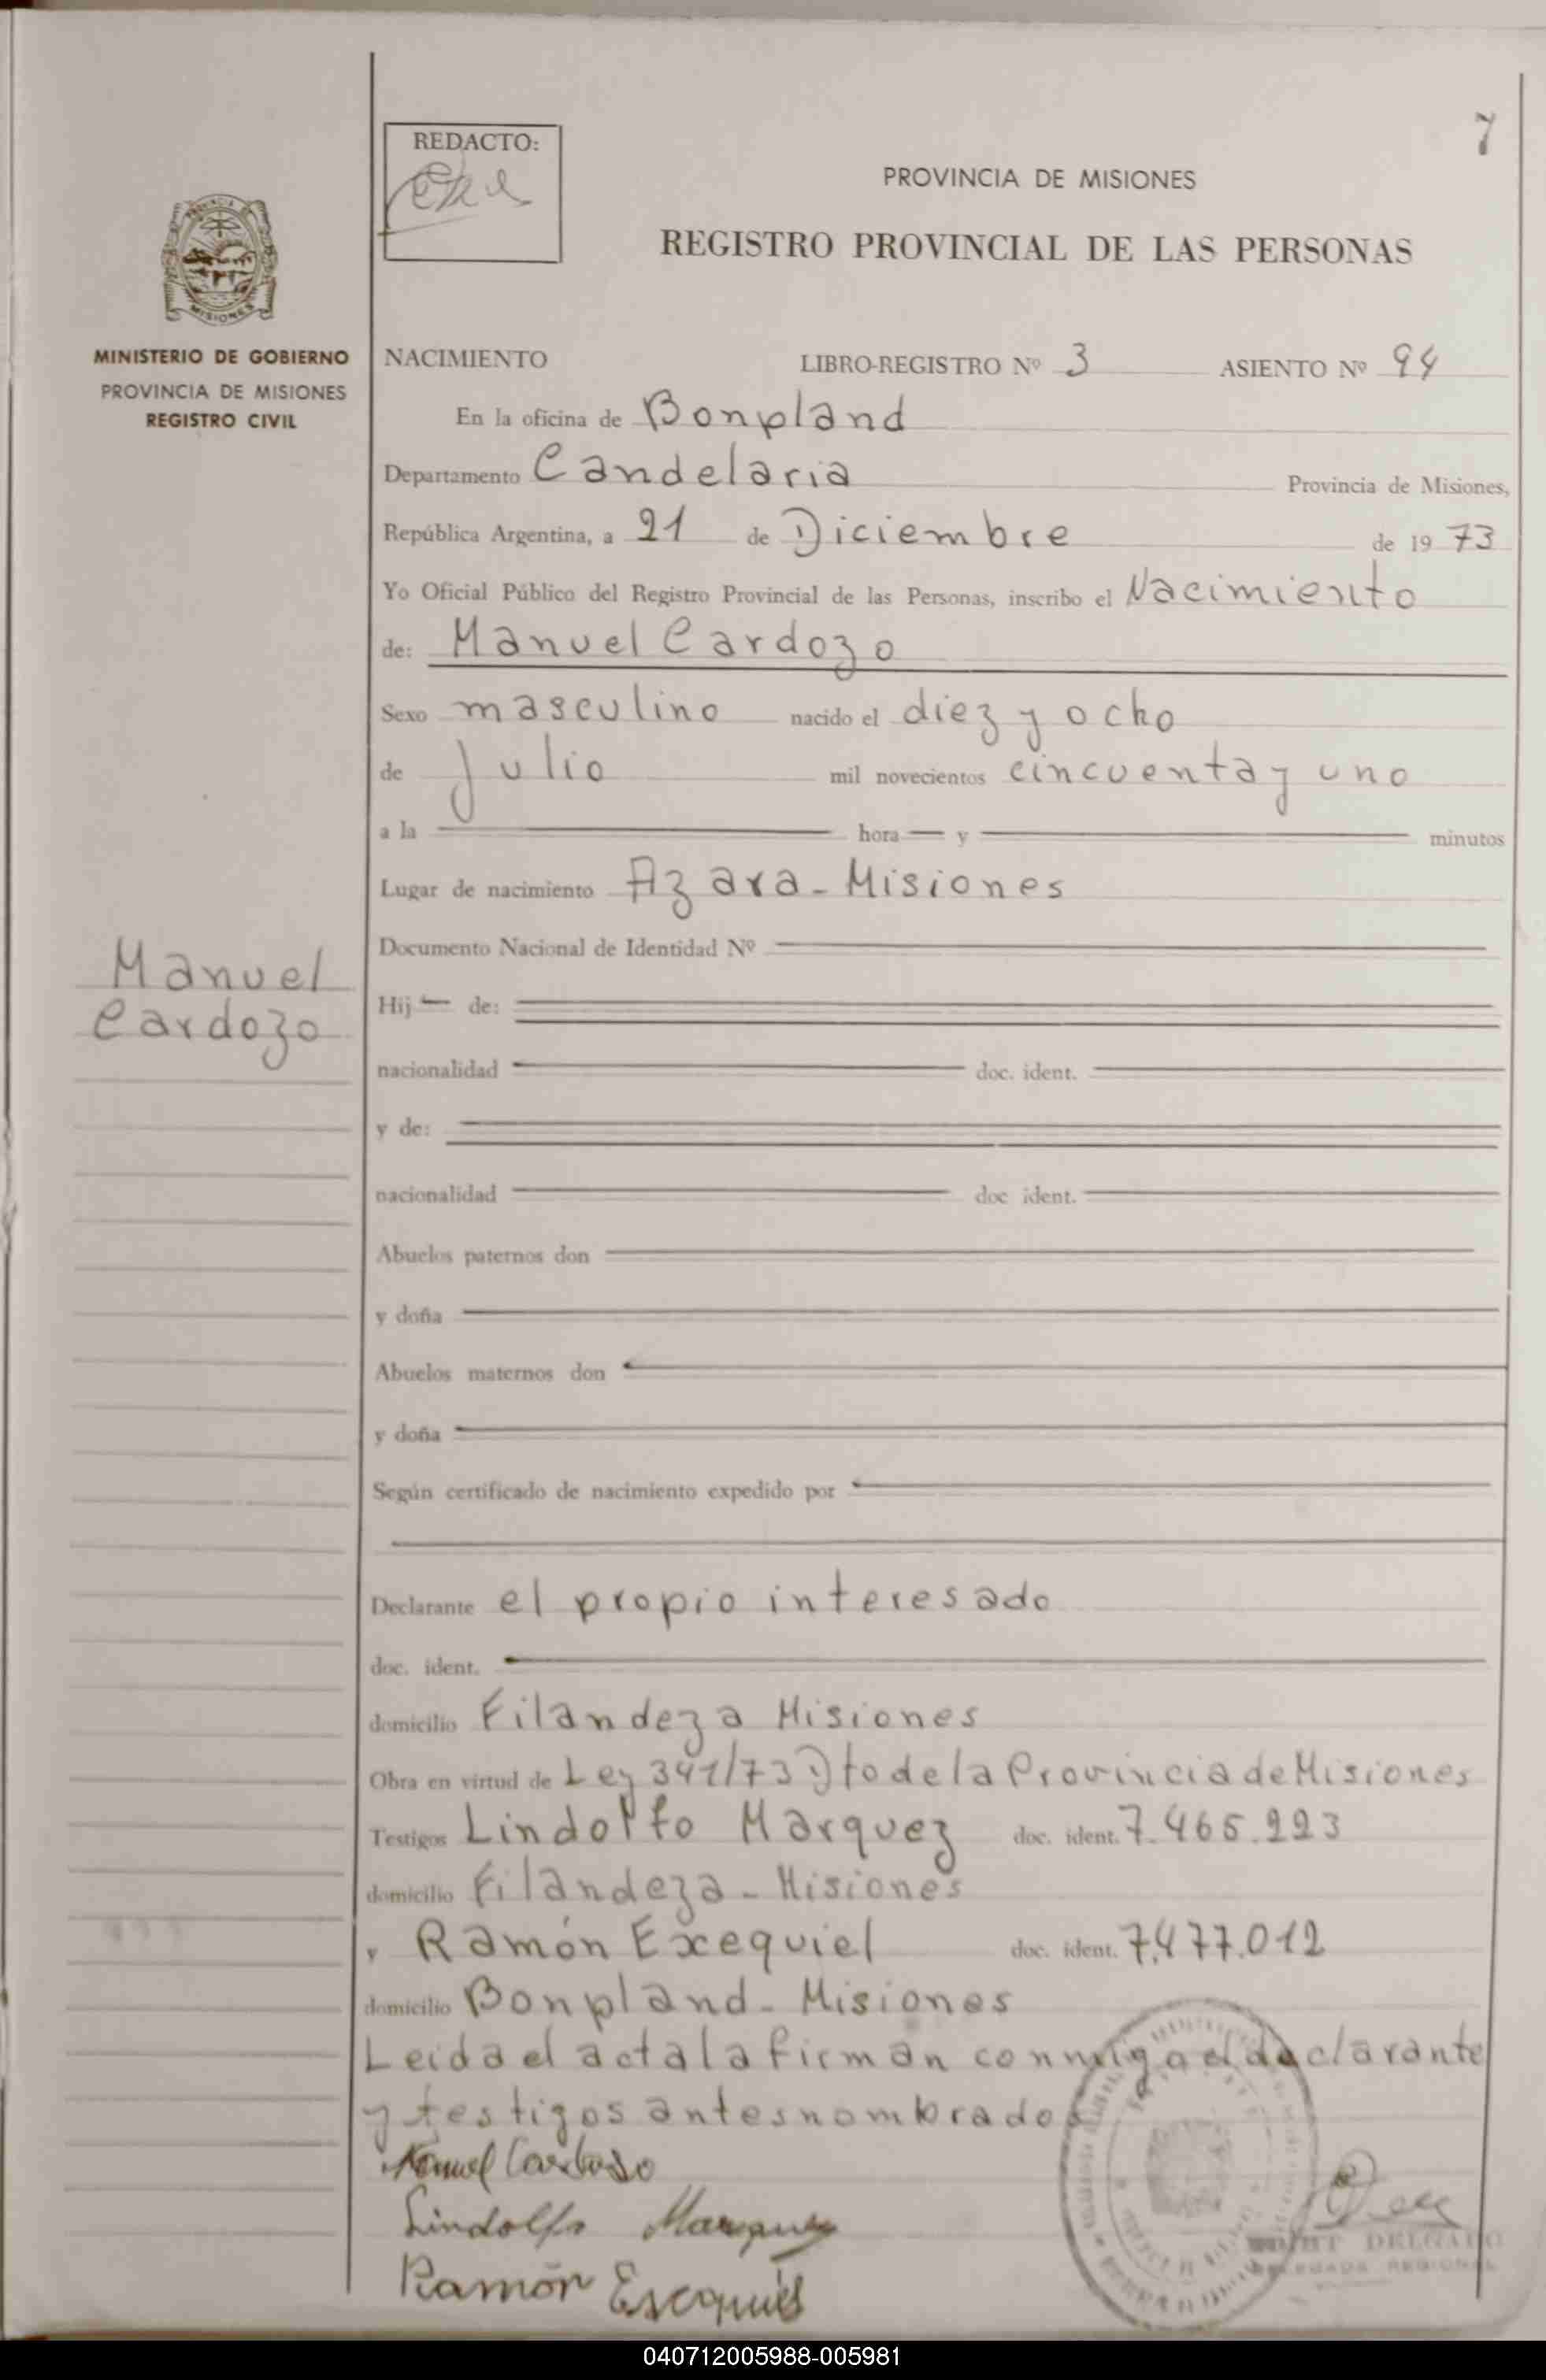 7
REDACTO:
PROVINCIA DE MISIONES
REGISTRO PROVINCIAL DE LAS PERSONAS
MINISTERIO DE GOBIERNO
PROVINCIA DE MISIONES
REGISTRO CIVIL
NACIMIENTO LIBRO-REGISTRO Nº 3 ASIENTO Nº 94
En la oficina de Bonpland
Departamento Candelaria Provincia de Misiones,
República Argentina, a 21 de Diciembre de 19 73
Yo Oficial Público del Registro Provincial de las Personas, inscribo el Nacimiento
de: Manuel Cardozo
Sexo masculino nacido el diez y ocho
de Julio mil novecientos cincuenta y uno
a la hora y minutos
Lugar de nacimiento Azara - Misiones
Manuel
Cardozo
Documento Nacional de Identidad Nº
Hij de:
nacionalidad doc. ident.
y de:
nacionalidad doc ident.
Abuelos paternos don
y doña
Abuelos maternos don
y doña
Según certificado de nacimiento expedido por
Declarante el propio interesado
doc. ident.
domicilio Filandeza Misiones
Obra en virtud de Ley 341/73 Dto de la Provincia de Misiones
Testigos Lindolfo Marquez doc. ident. 7.465.223
domicilio Filandeza - Misiones
y Ramón Exequiel doc. ident. 7.477.012
domicilio Bonpland - Misiones
Leida el acta la firman conmigo el declarante
y testigos antes nombrados
Manuel Cardozo
Lindolfo Marquez
Ramón Esequiel
DELGADO
REGIONAL
040712005988-005981